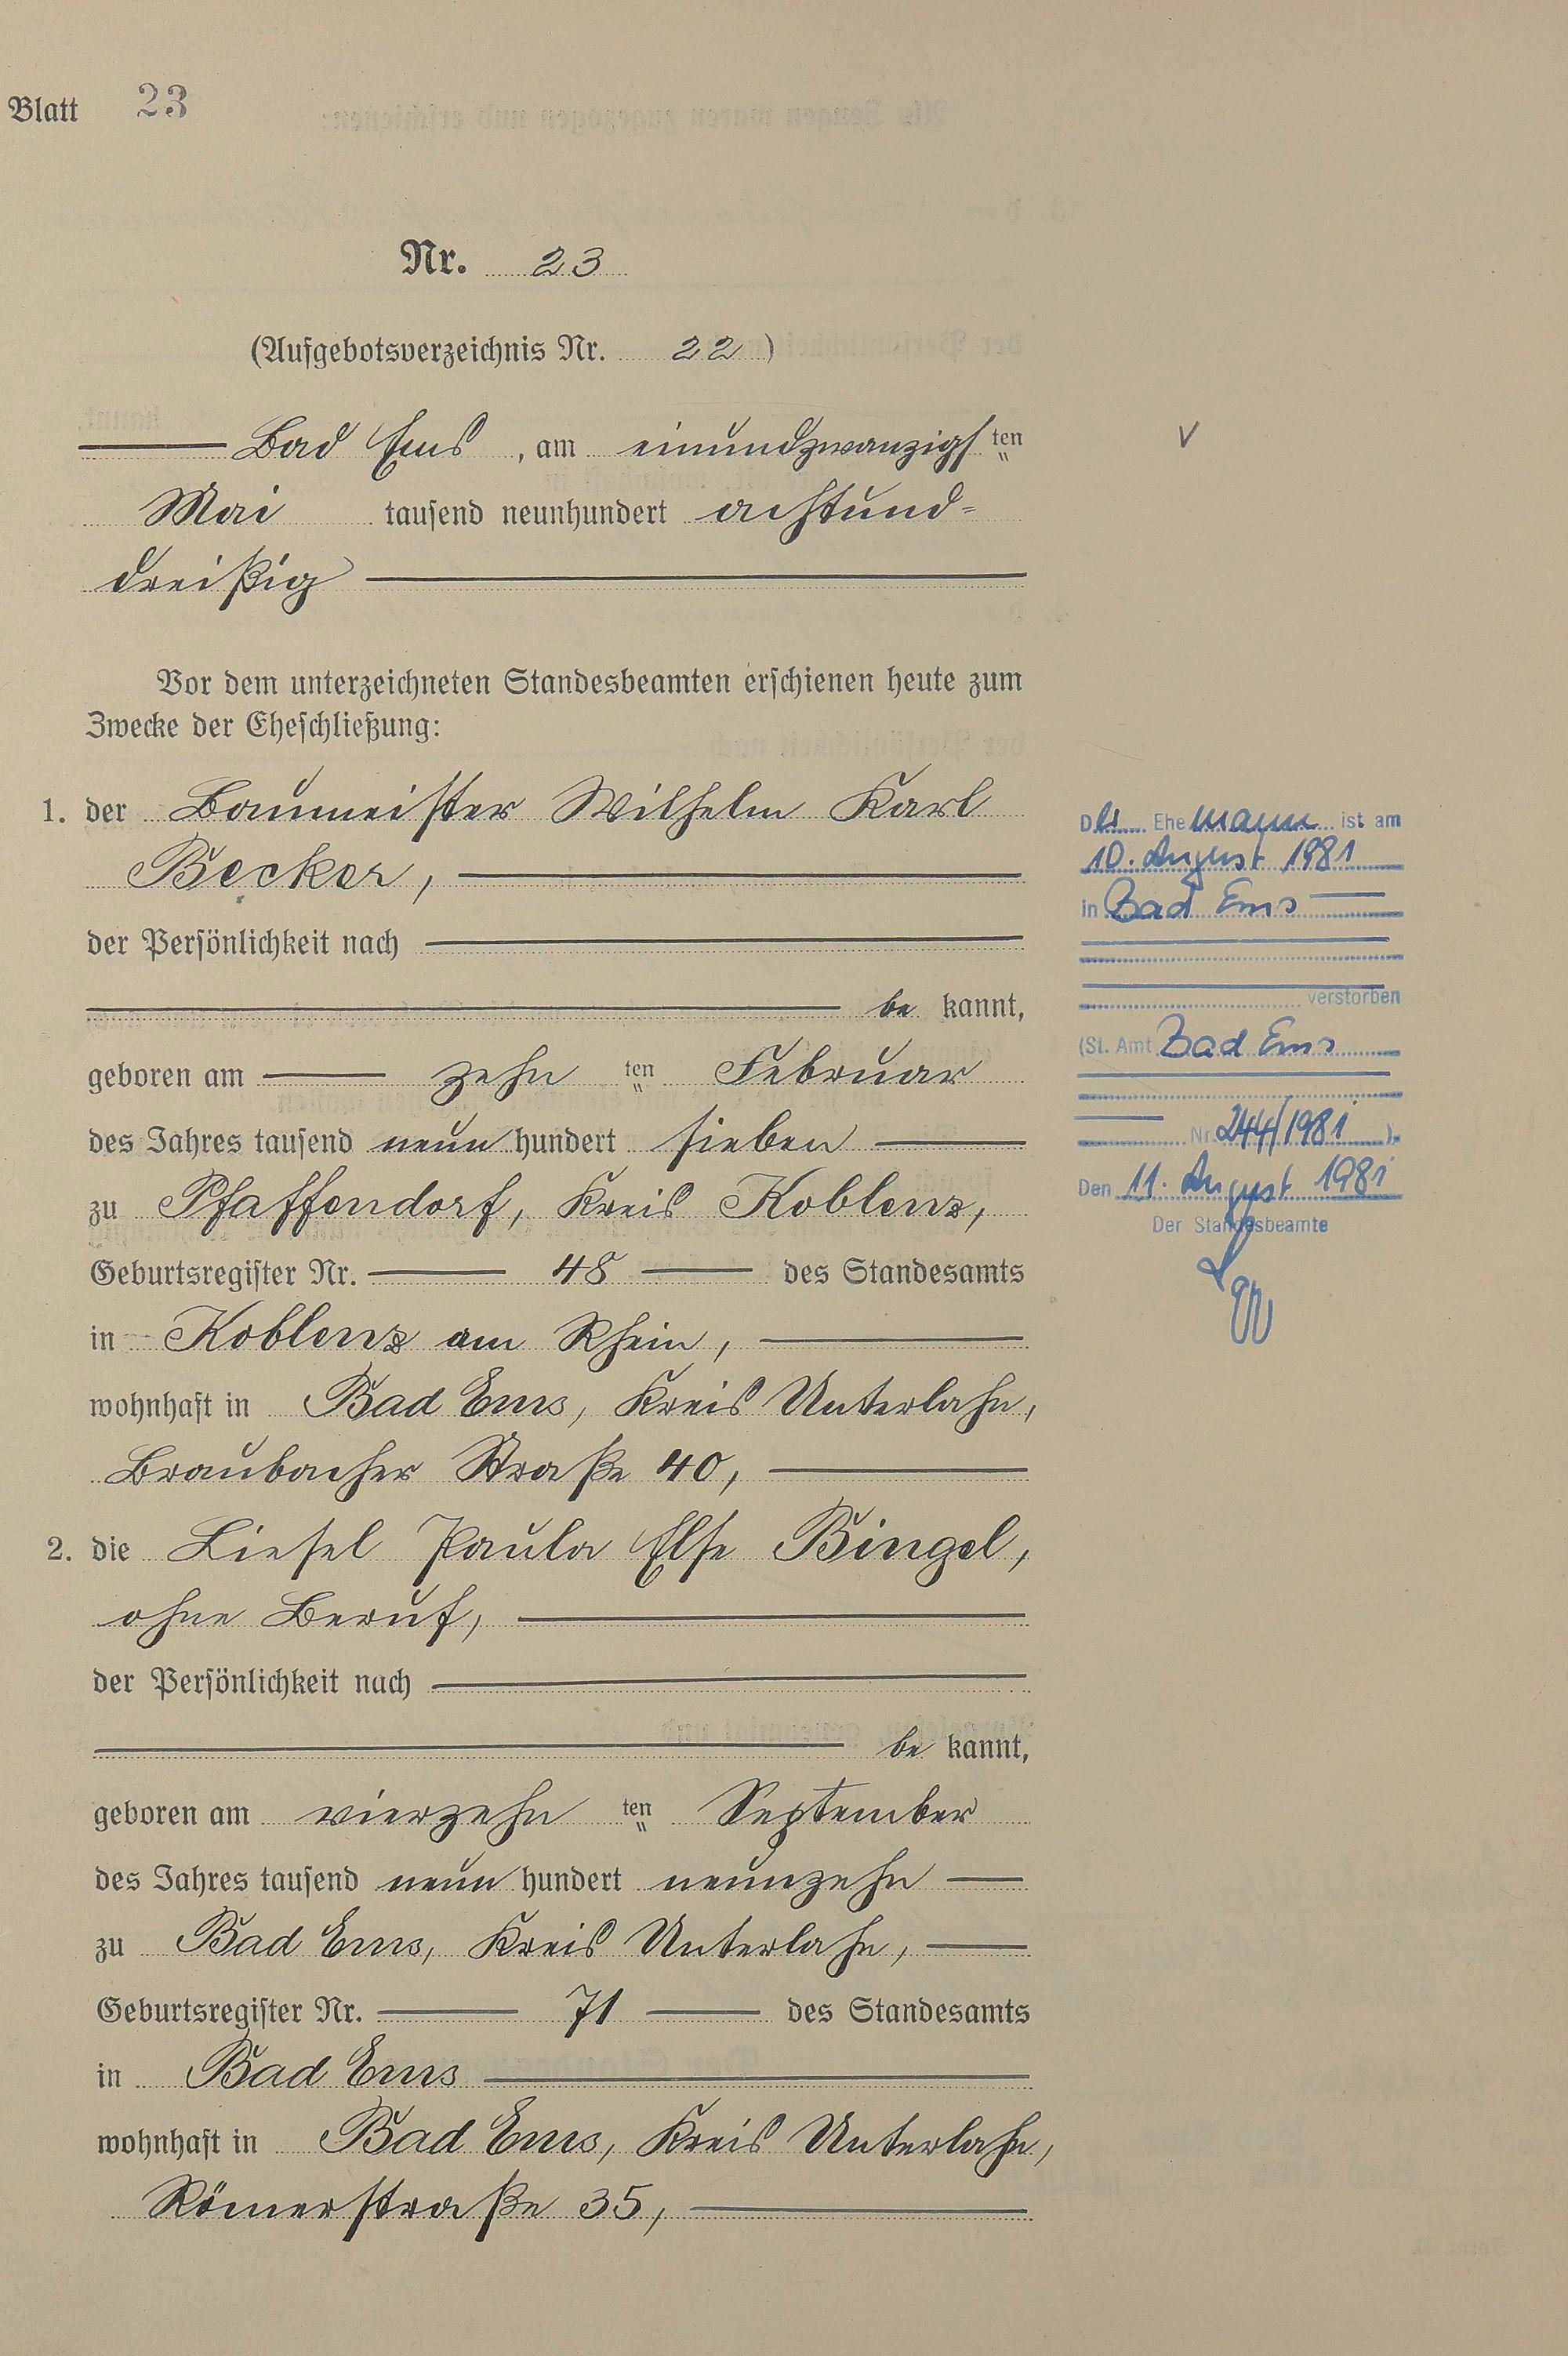 Blatt 23
Nr. 23
(Aufgebotsverzeichnis Nr. 22)
Bad Ems, am einundzwanzigsten
Mai tausend neunhundert achtund-
dreißig
Vor dem unterzeichneten Standesbeamten erschienen heute zum
Zwecke der Eheschließung:
1. der Baumeister Wilhelm Karl
Becker,
der Persönlichkeit nach
be kannt,
geboren am zehn ten Februar
des Jahres tausend neun hundert sieben
zu Pfaffendorf, Kreis Koblenz,
Geburtsregister Nr. 48 des Standesamts
in Koblenz am Rhein,
wohnhaft in Bad Ems, Kreis Unterlahn,
Braubacher Straße 40,
2. die Liesel Paula Else Bingel,
ohne Beruf,
der Persönlichkeit nach
be kannt,
geboren am vierzehn ten September
des Jahres tausend neun hundert neunzehn
zu Bad Ems, Kreis Unterlahn,
Geburtsregister Nr. 71 des Standesamts
in Bad Ems
wohnhaft in Bad Ems, Kreis Unterlahn,
Römerstraße 35,
Der Ehemann ist am
10. August 1981
in Bad Ems
verstorben
(St. Amt Bad Ems
Nr. 244/1981).
Den 11. August 1981
Der Standesbeamte